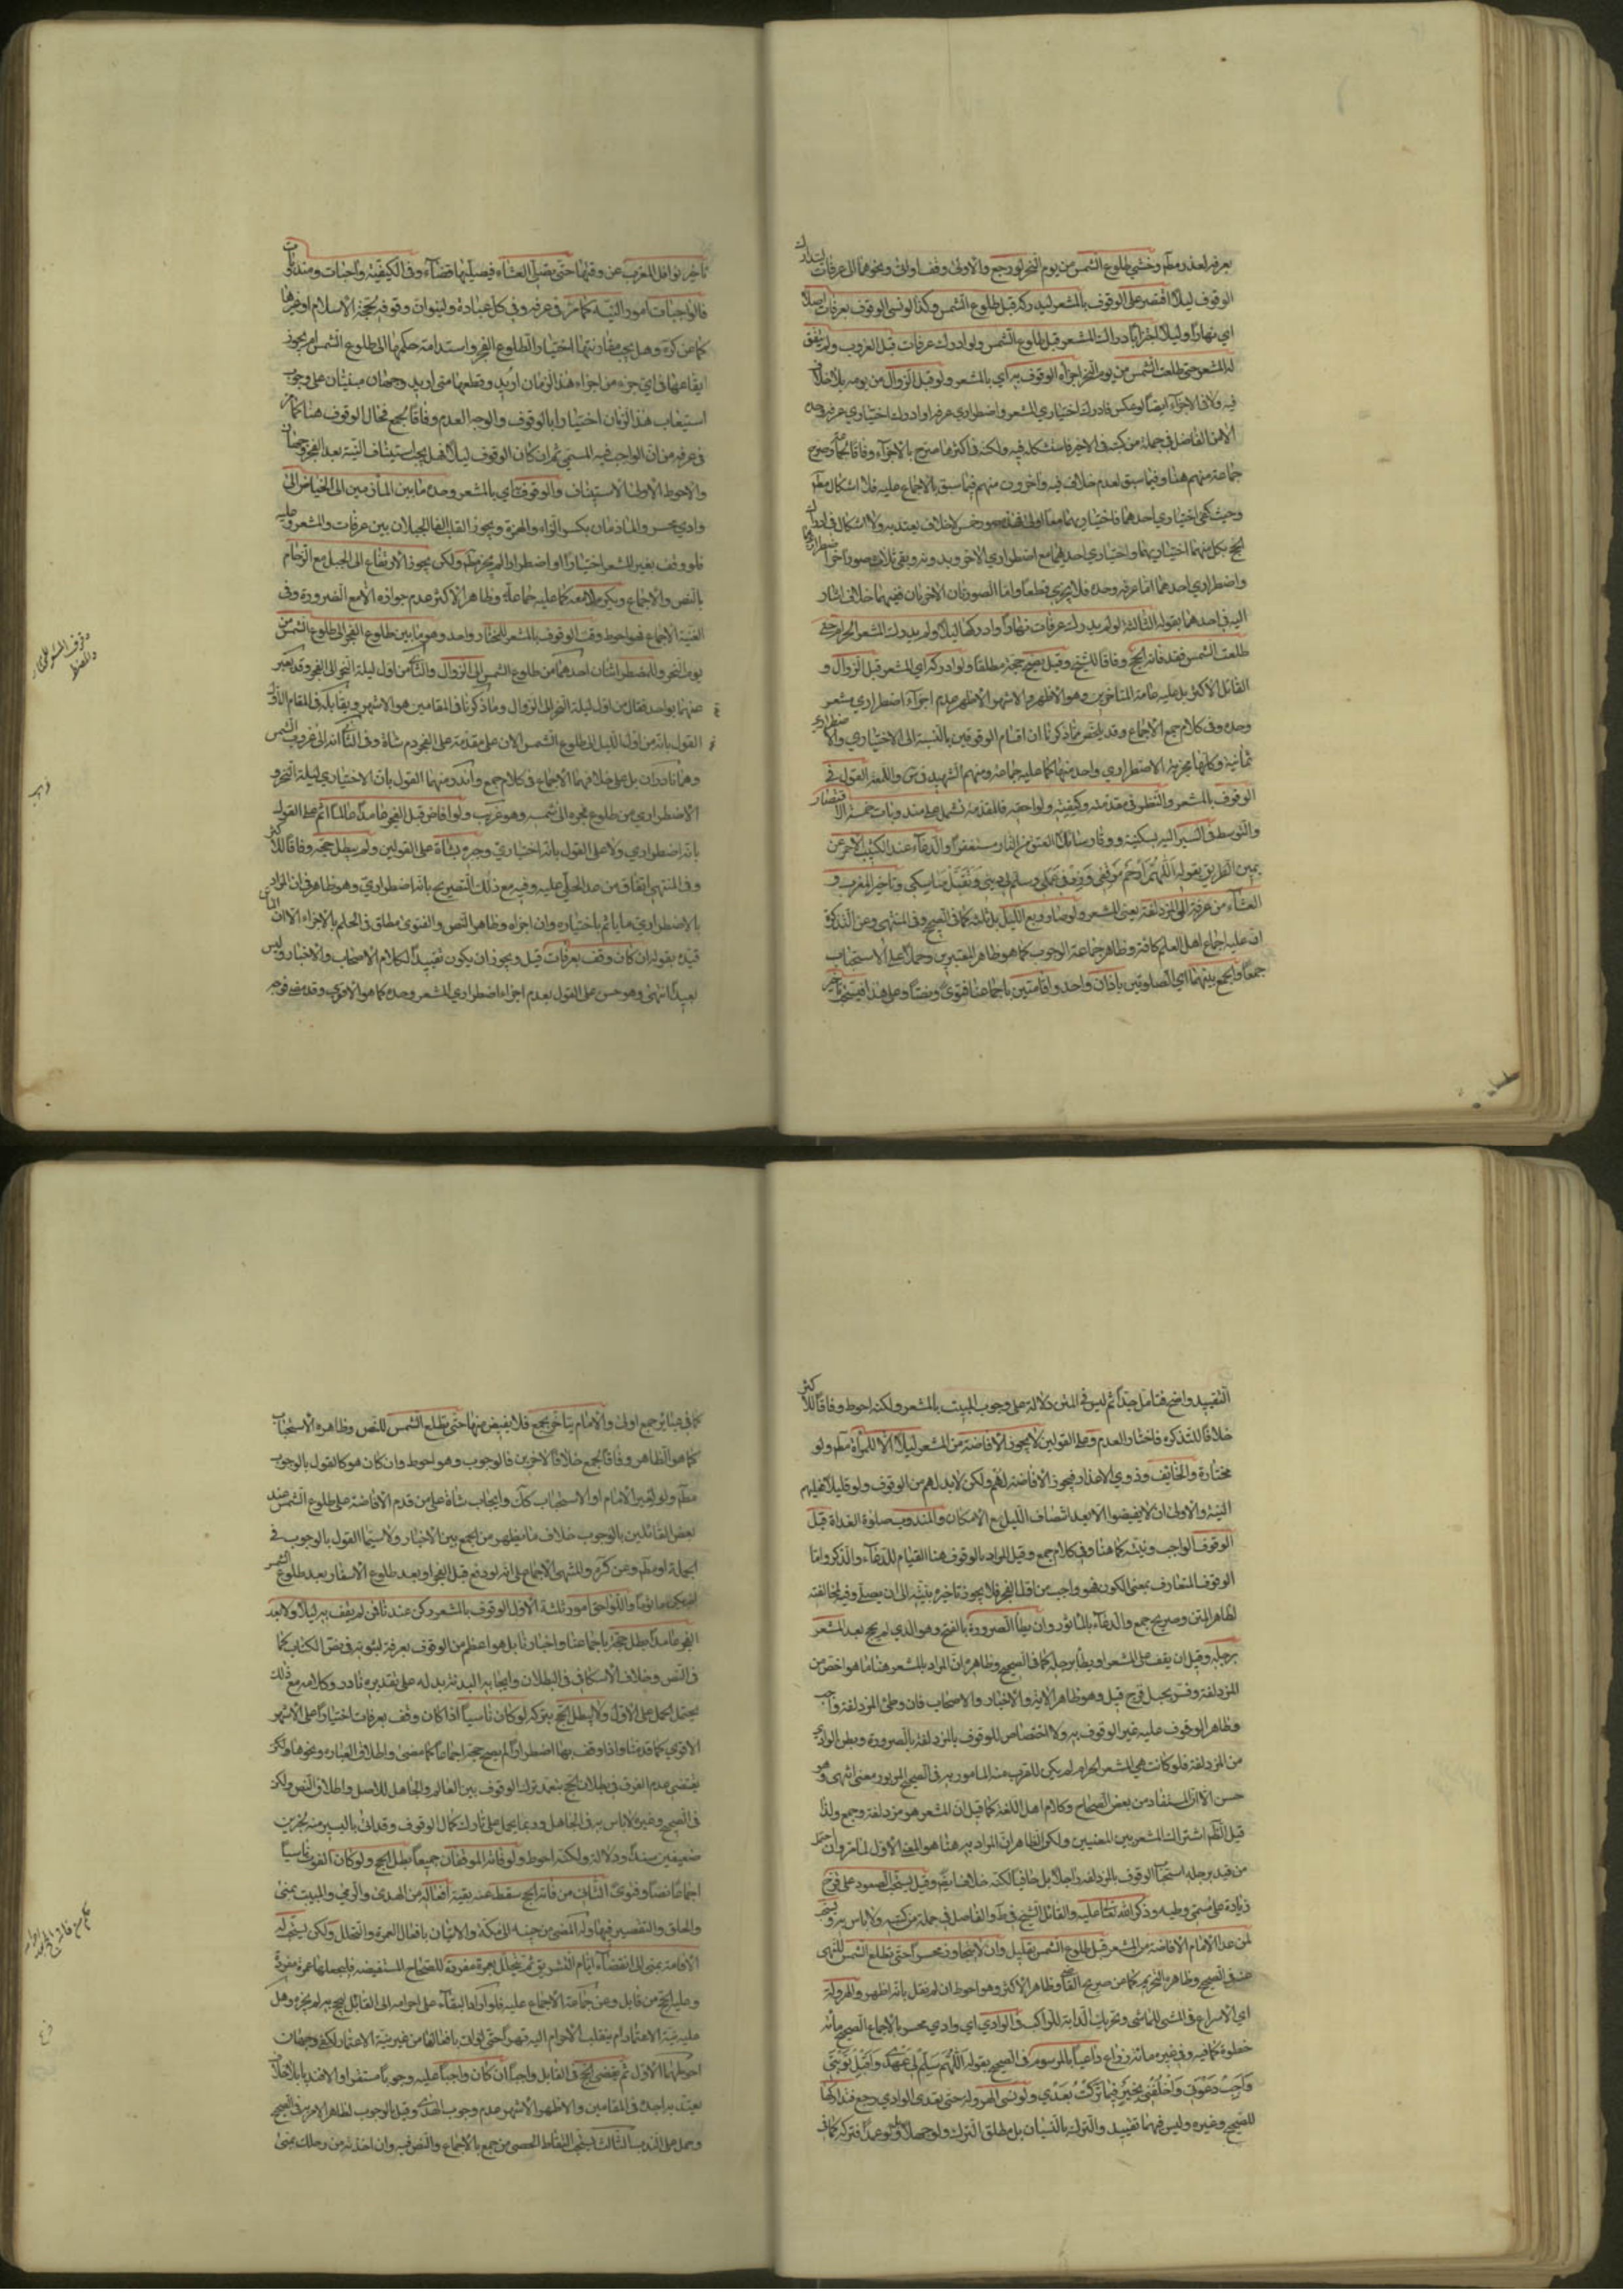 بعرفة لعذر مطلقا وخشي طلوع الشمس من يوم النحر لو رجع والاولى وقف اولى ونحوها الى عرفات لتدارك
الوقوف ليلا اقتصر على الوقوف بالمشعر ليدركه قبل طلوع الشمس وكذا لو نسي الوقوف بعرفات اصلا
اي نهارا وليلا اجتزأ بادراك المشعر قبل طلوع الشمس ولو ادرك عرفات قبل الغروب ولم يتفق
له المشعر حتى طلعت الشمس من يوم النحر اجزأه الوقوف به اي بالمشعر ولو قبل الزوال من يومه بلا خلاف
فيه ولا في الاجزاء ايضا لو عكس فادرك اختياري المشعر واضطراري عرفة او ادرك اختياري عرفة وحده
الا من الفاضل في جملة من كتبه في الاخير فاستشكله فيه ولكنه في اكثرها صرح بالاجزاء وفاقا وصرح
جماعة منهم هنا وفيما سبق لعدم خلاف فيه واخرون منهم فيما سبق بالاجماع عليه فلا اشكال مطلقا
وحيث كفى اختياري احدهما فاختياريهما معا اولى فهذه صور خمس لا خلاف يعتد به ولا اشكال في ادراك
الحج بكل منها اختياريهما واختياري احدهما مع اضطراري الاخر وبدونه وبقي ثلاث صور اخر اضطراريهما
واضطراري احدهما اما عرفة وحده فلا يجزي قطعا واما الصورتان الاخريان ففيهما خلاف اشار
اليه في احدهما بقوله الثالثة لو لم يدرك عرفات نهارا وادركها ليلا ولم يدرك المشعر الحرام حتى
طلعت الشمس فقد فاته الحج وفاقا للشيخ وقيل يصح حجه مطلقا ولو ادركه اي المشعر قبل الزوال و
القائل الاكثر بل عليه عامة المتاخرين وهو الاظهر والاشهر الاظهر عدم اجزاء اضطراري مشعر
وحده وفي كلام جمع الاجماع وقد يلخص مما ذكرنا ان اقسام الوقوفين بالنسبة الى الاختياري والاضطراري
ثمانية وكلها مجزية الا اضطراري واحد منها كما عليه جماعة ومنهم الشهيد في س واللمعة القول في
الوقوف بالمشعر والنظر في مقدمته وكيفيته ولواحقه فالمقدمة تشتمل على مندوبات خمسة الاقتصار
والتوسط في السير اليه بسكينة ووقار سائلا العتق من النار مستغفرا والدعاء عند الكثيب الاحمر عن
يمين الطريق بقوله اللهم ارحم موقفي وزد في عملي وسلم لي ديني وتقبل مناسكي وتاخير المغرب و
العشاء من عرفة الى المزدلفة يعني المشعر ولو صار ربع الليل بل ثلثه كما في الصحيح وفي المنتهى وعن التذكرة
ان عليه اجماع اهل العلم كافة وظاهر جماعة الوجوب كما هو ظاهر المعتبرين وحملا على الاستحباب
جمعا والجمع بينهما اي الصلوتين باذان واحد واقامتين باجماعنا فتوى ونصا وعلى هذا فيستحب تاخير
تاخير نوافل المغرب عن وقتها حتى يصلي العشاء فيصليها قضاء وفي الكيفية واجبات ومندوبات
فالواجبات امور النية كما مر في عرفة وفي كل عبادة ولينو ان وقوفه لحجة الاسلام او غيرها
كما عن كره وهل يجب مقارنتها اختيارا لطلوع الفجر واستدامة حكمها الى طلوع الشمس ام يجوز
ايقاعها في اي جزء من اجزاء هذا الزمان اريد وقطعها متى اريد وجهان مبنيان على وجوب
استيعاب هذا الزمان اختيارا بالوقوف والوجه العدم وفاقا لجمع فحال الوقوف هنا كما مر
في عرفة من ان الواجب فيه المسمى ثم ان كان الوقوف ليلا فهل يجب استيناف النية بعد الفجر وجهان
والاحوط الاولى الاستيناف والوقوف به اي بالمشعر وحده ما بين المأزمين الى الحياض الى
وادي محسر والمأزمان بكسر الزاء والهمزة ويجوز القلب الفا الجبلان بين عرفات والمشعر وعليه
فلو وقف بغير المشعر اختيارا او اضطرارا لم يجز مطلقا ولكن يجوز الارتفاع الى الجبل مع الزحام
بالنص والاجماع ويكره لا معه كما عليه جماعة وظاهر الاكثر عدم جوازه الا مع الضرورة وفي
الغنية الاجماع فهو احوط وقت الوقوف بالمشعر للمختار واحد وهو ما بين طلوع الفجر الى طلوع الشمس من
يوم النحر وللمضطر اثنان احدهما من طلوع الشمس الى الزوال والثاني من اول ليلة النحر الى الفجر وقد يعبر
عنهما بواحد فقال من اول ليلة النحر الى الزوال وما ذكرنا في المقامين هو الاشهر ويقابله في المقام الاول
القول بانه من اول الليل الى طلوع الشمس الا ان على مقدمه على الفجر دم شاة وفي الثاني انه الى غروب الشمس
وهما نادران بل على خلافهما الاجماع في كلام جمع واندر منهما القول بان الاختياري ليلة النحر و
الاضطراري من طلوع فجره الى شمسه وهو غريب ولو افاض قبل الفجر عامدا عالما اثم على القول
بانه اضطراري ولا على القول بانه اختياري وجبره بشاة على القولين ولم يبطل حجه وفاقا للاكثر
وفي المنتهى اتفاق من عدا الحلي عليه وفيه مع ذلك التصريح بانه اضطراري وهو ظاهر في ان المراد
بالاضطراري ما ياثم باختياره وان اجزأه وظاهر النص والفتوى مطلق في الحكم بالاجزاء الا ان الماتن
قيده بقوله ان كان وقف بعرفات قيل ويجوز ان يكون تقييدا لكلام الاصحاب والاخبار وليس
بعيدا انتهى وهو حسن على القول بعدم اجزاء اضطراري المشعر وحده كما هو الاقوى وقد مضى فوجه
وقوف المشعر للمختار
والمضطر
التقييد واضح فتامل جدا ثم ليس في المتن دلالة على وجوب المبيت بالمشعر ولكنه احوط وفاقا للاكثر
خلافا للتذكرة فاختار العدم وعلى القولين لا يجوز الافاضة من المشعر ليلا الا للمرأة مطلقا ولو
مختارة والخائف وذوي الاعذار فيجوز الافاضة لهم ولكن لا بد لهم من الوقوف ولو قليلا فعليهم
النية والاولى ان لا يفيضوا الا بعد انتصاف الليل مع الامكان والمندوب صلوة الغداة قبل
الوقوف الواجب ونيته كما هنا وفي كلام جمع وقيل المراد بالوقوف هنا القيام للدعاء والذكر واما
الوقوف المتعارف بمعنى الكون فهو واجب من اول الفجر فلا يجوز تاخيره بنيته الى ان يصلي وفيه مخالفته
لظاهر المتن وصريح جمع والدعاء بالماثور وان يطأ الصرورة بالفتح وهو الذي لم يحج بعد المشعر
برجله وقيل ان يقف على المشعر او يطأ برجله كما في الصحيح وظاهره ان المراد بالمشعر هنا ما هو اخص من
المزدلفة وفسر بجبل قزح قيل وهو ظاهر الاية والاخبار والاصحاب فان وطئ المزدلفة واجب
وظاهر الوقوف عليه غير الوقوف به ولا اختصاص للوقوف بالمزدلفة بالصرورة وبطن الوادي
من المزدلفة فلو كانت هي المشعر الحرام لم يكن للقرب منه المامور به في الصحيح المزبور معنى انتهى وهو
حسن الا ان المستفاد من بعض الصحاح وكلام اهل اللغة كما قيل ان المشعر هو مزدلفة وجمع ولذا
قيل الظاهر اشتراك المشعر بين المعنيين ولكن الظاهر ان المراد به هنا هو المعنى الاول لما مر وان احتمل
من قيد برجله استحباب الوقوف بالمزدلفة راجلا بل حافيا لكنه خلاف وقيل يستحب الصعود على قزح
زيادة على مسمى وطيه وذكر الله تعالى عليه والقائل الشيخ في ط والفاضل في جملة من كتبه ولا باس به ويستحب
لمن عدا الامام الافاضة من المشعر قبل طلوع الشمس بقليل وان لا يتجاوز محسرا حتى تطلع الشمس للنهي
عنه في الصحيح وظاهره التحريم كما عن صريح القاضي وظاهر الاكثر وهو احوط ان لم نقل بانه اظهر والهرولة
اي الاسراع في المشي للماشي وتحريك الدابة للراكب في الوادي اي وادي محسر بالاجماع الصحيح مائة
خطوة كما فيه وفي غيره مائة ذراع داعيا بالمرسوم في الصحيح بقوله اللهم سلم لي عهدي واقبل توبتي
واجب دعوتي واخلفني بخير فيمن تركت بعدي ولو نسي الهرولة حتى تعدى الوادي رجع فتداركها
للصحيح وغيره وليس فيهما تقييد والترك بالنسيان بل مطلق الترك ولو جهلا او عمدا فتركه كما في
كما في عبائر جمع اولى والامام يتأخر بجمع فلا يفيض منها حتى تطلع الشمس للنص وظاهره الاستحباب
كما هو الظاهر وفاقا لجمع خلافا لاخرين فالوجوب وهو احوط وان كان هو كالقول بالوجوب
مطلقا ولو لغير الامام او الاستحباب كذلك وايجاب شاة على من قدم الافاضة على طلوع الشمس عند
بعض القائلين بالوجوب خلاف ما يظهر من الجمع بين الاخبار ولا سيما القول بالوجوب في
الجملة او مطلقا وعن كره والمنتهى الاجماع على انه لو دفع قبل الفجر او بعد طلوع الاسفار بعد طلوع الشمس
لم يكن ماثوما واللواحق امور ثلثة الاول الوقوف بالمشعر ركن عندنا فمن لم يقف به ليلا ولا بعد
الفجر عامدا بطل حجه باجماعنا واخبارنا بل هو اعظم من الوقوف بعرفة لثبوته في نص الكتاب كما
في النص وخلاف الاسكافي في البطلان وايجابه البدنة بدله على تقديره نادر وكلامه مع ذلك
يحتمل الحمل على الاول ولا يبطل الحج بتركه لو كان ناسيا اذا كان وقف بعرفات اختيارا على الاشهر
الاقوى كما قدمنا واذا وقف بها اضطرارا لم يصح حجه اجماعا كما مضى واطلاق العبارة ونحوها ولكن
يقتضي عدم الفرق في بطلان الحج بتعمد ترك الوقوف بين العالم والجاهل للاصل واطلاق النص ولكن
في الصحيح وغيره لا باس به في الجاهل وربما يحمل على تارك كمال الوقوف وقد اتى باليسير منه لخبرين
ضعيفين سندا ودلالة ولكنه احوط ولو فاته الموقفان جميعا بطل الحج ولو كان الفوت ناسيا
اجماعا نصا وفتوى الثاني من فاته الحج سقط عنه بقية افعاله من الهدي والرمي والمبيت بمنى
والحلق والتقصير فيها وله المضي من حينه الى مكة والاتيان بافعال العمرة والتحلل ولكن يستحب له
الاقامة بمنى الى انقضاء ايام التشريق ثم يتحلل بعمرة مفردة للصحاح المستفيضة فليجعلها عمرة مفردة
وعليه الحج من قابل وعن جماعة الاجماع عليه فلو اراد البقاء على احرامه الى القابل ليحج به لم يجزه وهل
عليه نية الاعتمار ام ينقلب الاحرام اليه قهرا حتى لو اتى بافعالها من غير نية الاعتمار لكفى وجهان
احوطهما الاول ثم يقضي الحج في القابل واجبا ان كان واجبا عليه وجوبا مستقرا والا فندبا بلا خلاف
يعتد به اجده في المقامين والاظهر الاشهر عدم وجوب الهدي وقيل بالوجوب لظاهر الامر به في الصحيح
وحمل على الندب الثالث يستحب التقاط الحصى من جمع بالاجماع والنص فيه وان اخذته من رحلك بمنى